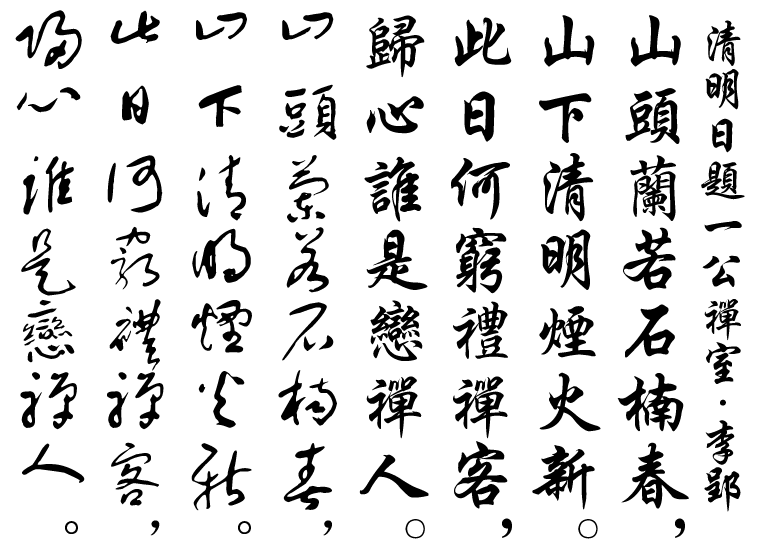 清明日題一公禪室·李郢
山頭蘭若石楠春,
山下清明煙火新。
此日何窮禮禪客,
歸心誰是戀禪人。
山頭蘭若石楠春,
山下清明煙火新。
此日何窮禮禪客,
歸心誰是戀禪人。